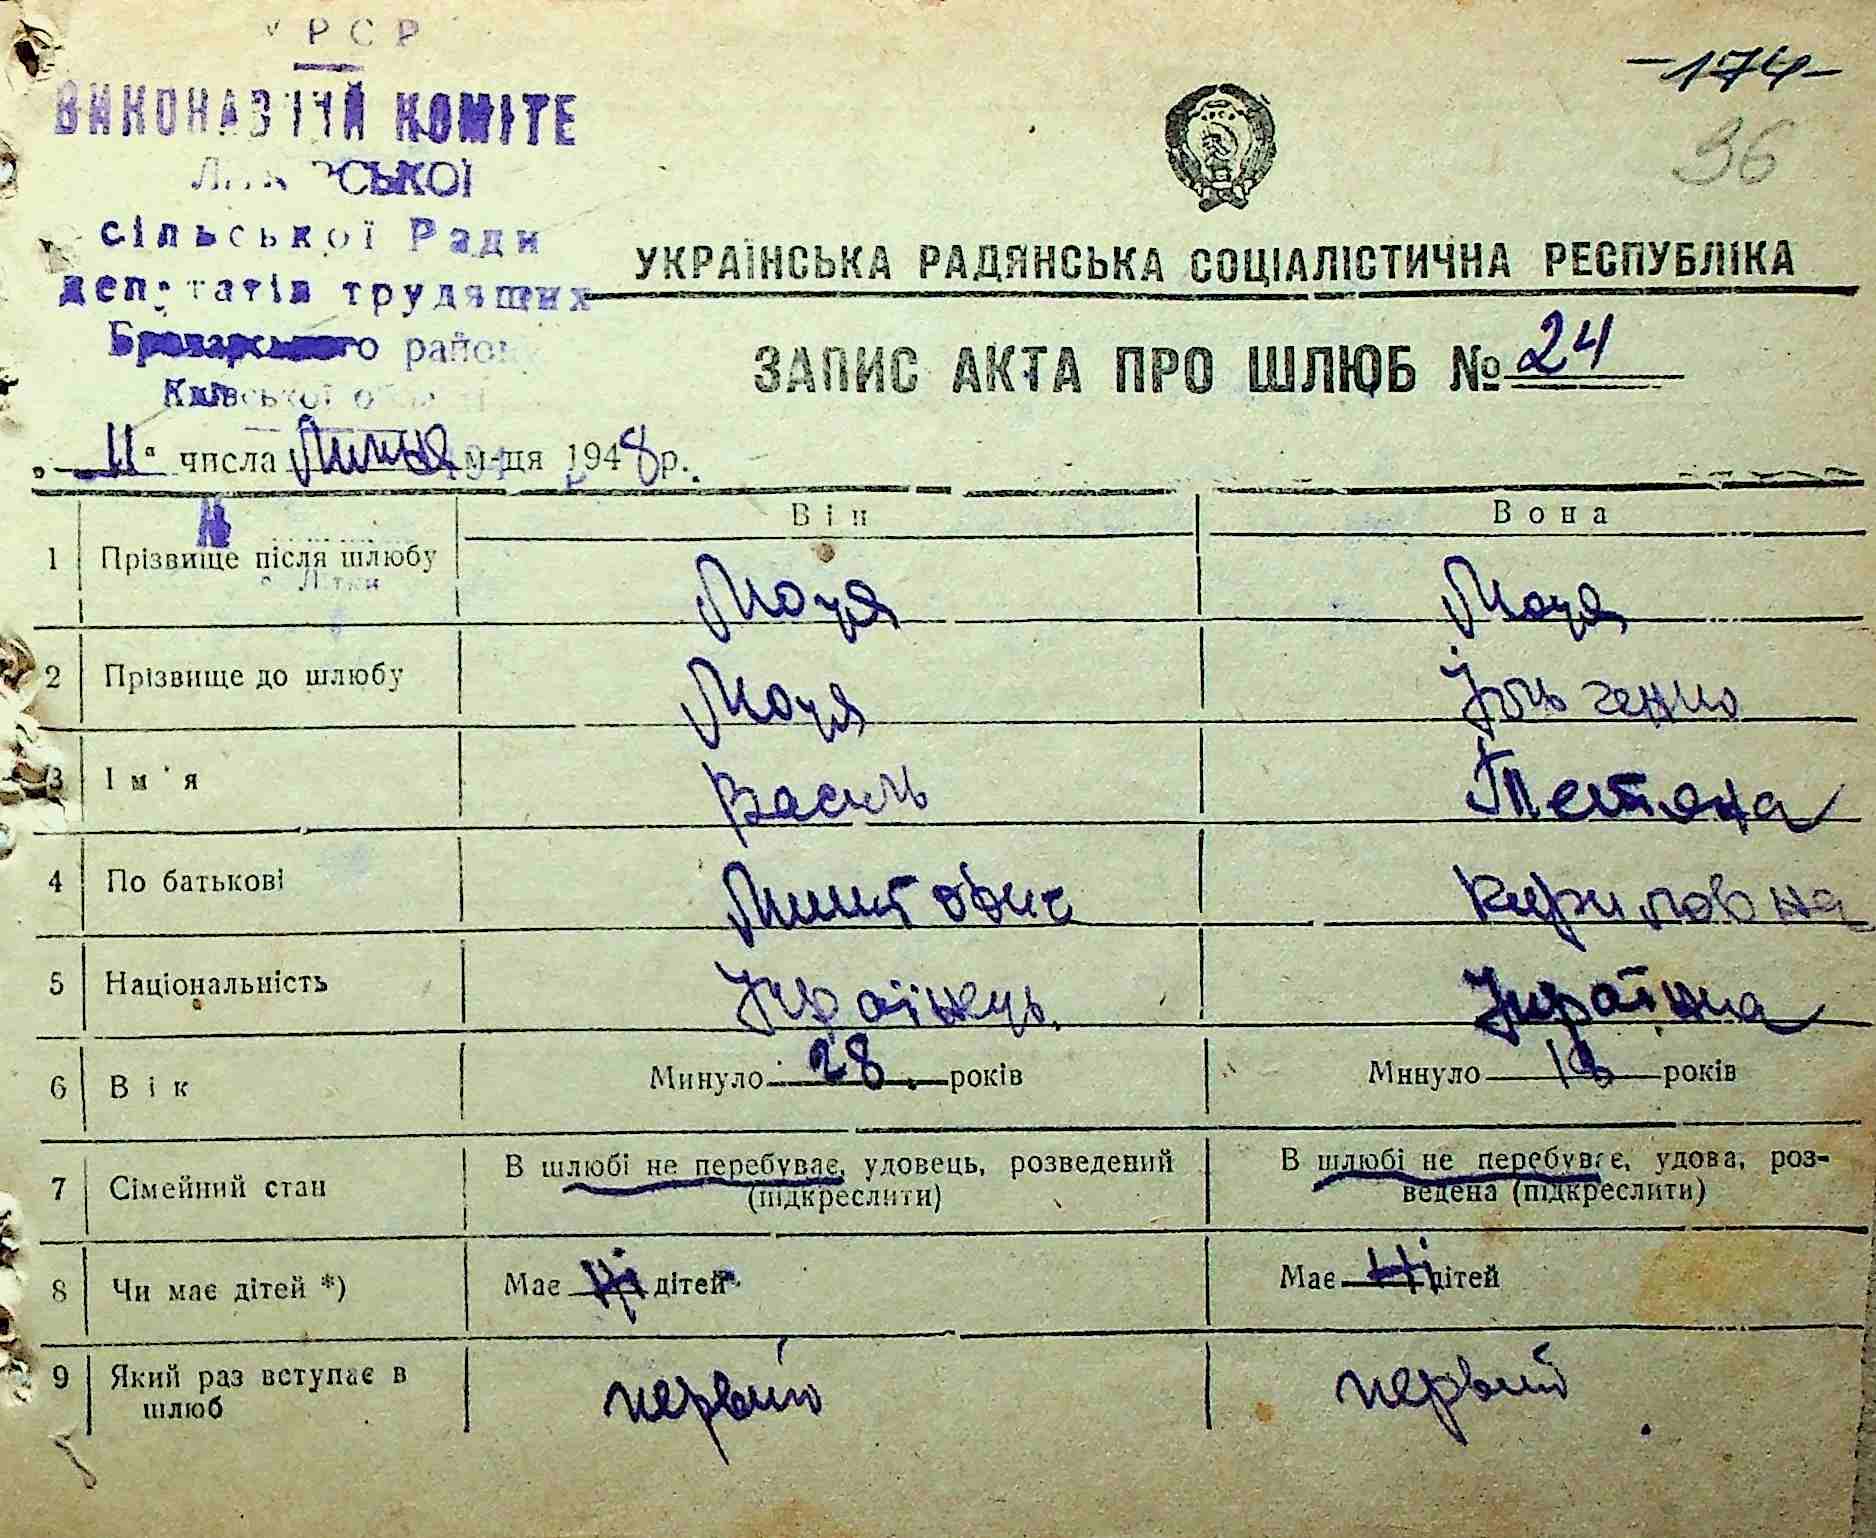 УРСР
ВИКОНАВЧИЙ КОМІТЕ
сільської Ради
депутатів трудящих
Броварського району
Київської області
-174-
36
УКРАЇНСЬКА РАДЯНСЬКА СОЦІАЛІСТИЧНА РЕСПУБЛІКА
ЗАПИС АКТА ПРО ШЛЮБ № 24
„11" числа Липня м-ця 1948 р.
Він Вона
1 Прізвище після шлюбу Моця Моця
с. Літки
2 Прізвище до шлюбу Моця
3 Ім'я Василь Тетяна
4 По батькові Кириловна
5 Національність Українець Українка
6 Вік Минуло 28 років Минуло 18 років
7 Сімейний стан В шлюбі не перебуває, удовець, розведений (підкреслити) В шлюбі не перебуває, удова, роз-
ведена (підкреслити)
8 Чи має дітей *) Має Ні дітей Має Ні дітей
9 Який раз вступає в шлюб первий первий